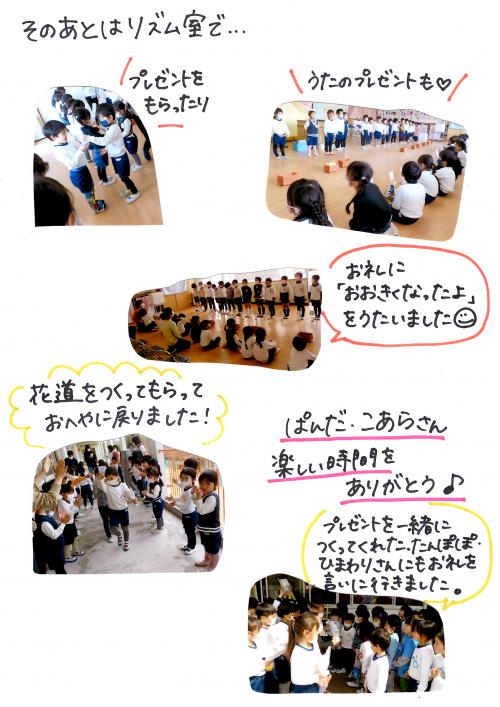 そのあとはリズム室で...
プレゼントを
もらったり
うたのプレゼントも♡
おれしに
「おおきくなったよ」
をうたいました☺
花道をつくってもらって
おへやに戻りました！
ぱんだ・こあらさん
楽しい時間を
ありがとう♪
プレゼントを一緒に
つくってくれた、たんぽぽ・
ひまわりさんにもお礼を
言いに行きました。